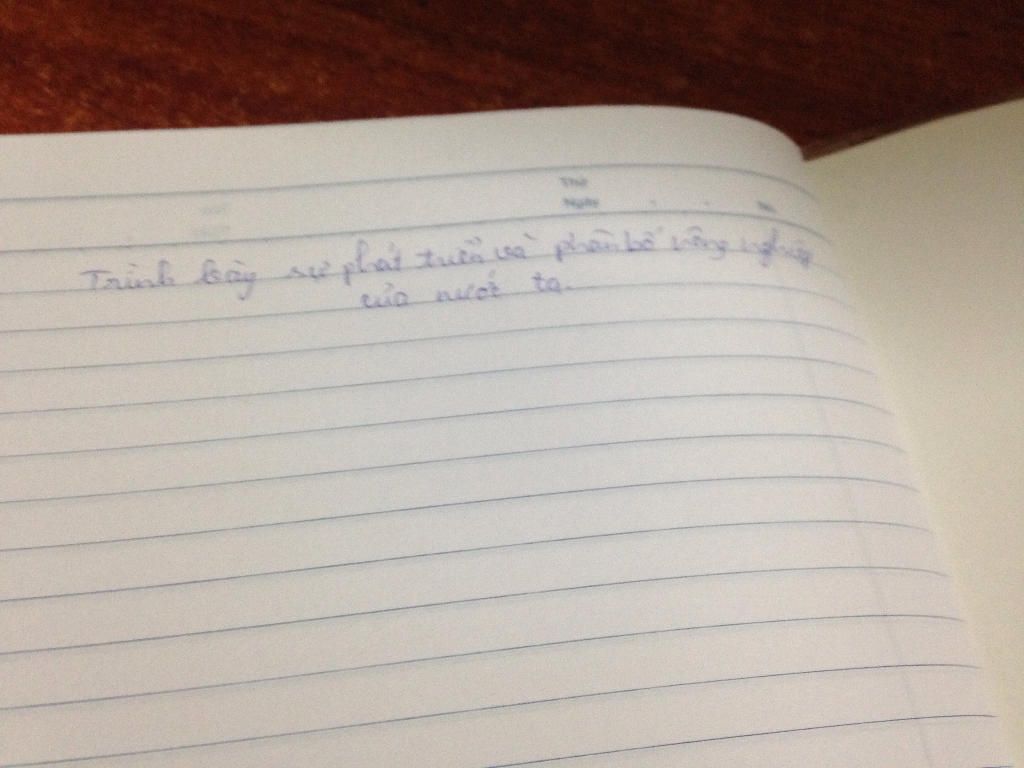 Thứ
Ngày
Trình bày sự phát triển và phân bố nông nghiệp
của nước ta.